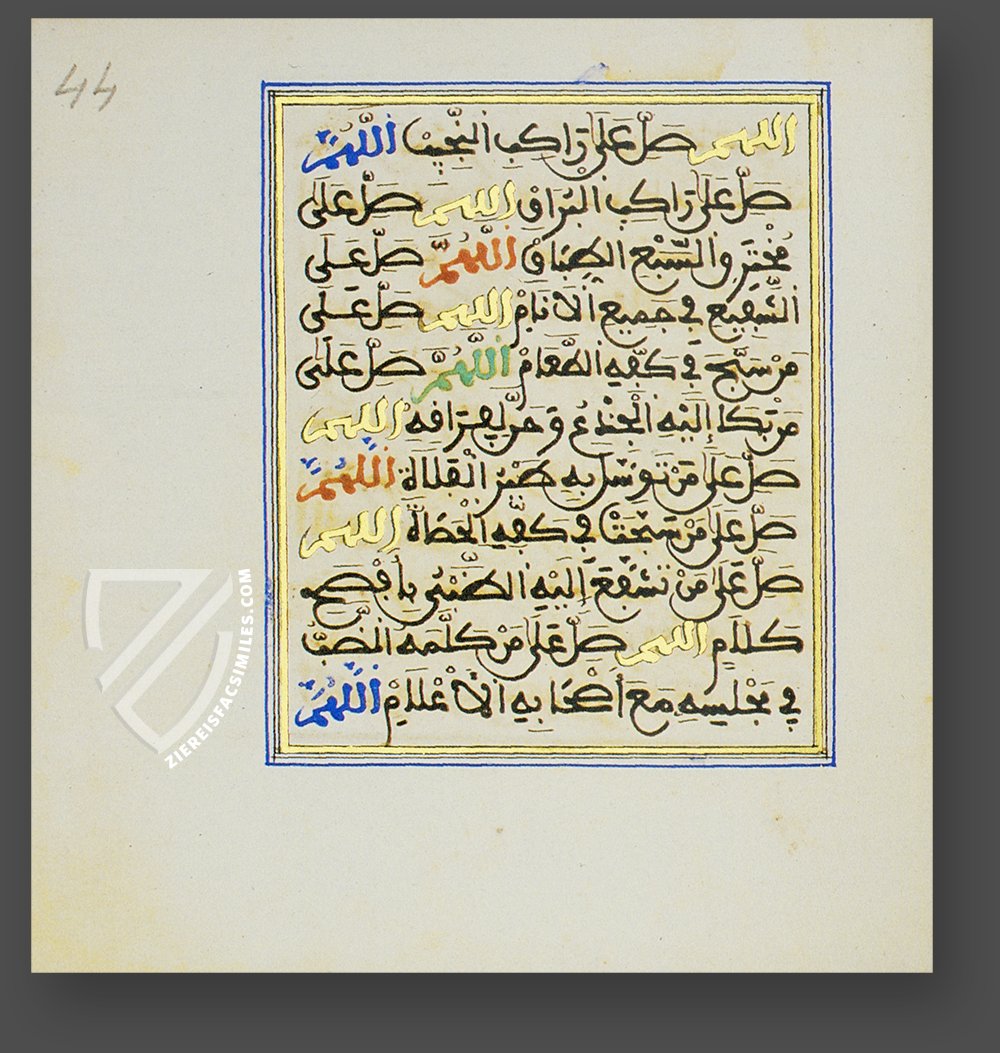 44
اللهم صَلِّ عَلَى رَاكِبِ النَّجِيبْ اللَّهُمَّ
صَلِّ عَلَى رَاكِبِ البُرَاقْ اللهم صَلِّ عَلَى
مُخْتَرِقِ السَّبْعِ الطِّبَاقْ اللَّهُمَّ صَلِّ عَلَى
الشَّفِيعِ فِي جَمِيعِ الأَنَامْ اللهم صَلِّ عَلَى
مَنْ سَبَّحَ فِي كَفِّهِ الطَّعَامْ اللَّهُمَّ صَلِّ عَلَى
مَنْ بَكَا إِلَيْهِ الْجِذْعُ وَحَنَّ لِفِرَاقِهِ اللهم
صَلِّ عَلَى مَنْ تَوَسَّلَ بِهِ طَيْرُ الْفَلَاةْ اللَّهُمَّ
صَلِّ عَلَى مَنْ سَبَّحَتْ فِي كَفِّهِ الْحَصَاةْ اللهم
صَلِّ عَلَى مَنْ تَشَفَّعَ إِلَيْهِ الظَّبْيُ بِأَفْصَحِ
كَلَامٍ اللهم صَلِّ عَلَى مَنْ كَلَّمَهُ الضَّبُّ
فِي مَجْلِسِهِ مَعَ أَصْحَابِهِ الأَعْلَامْ اللَّهُمَّ
ZIEREISFACSIMILES.COM